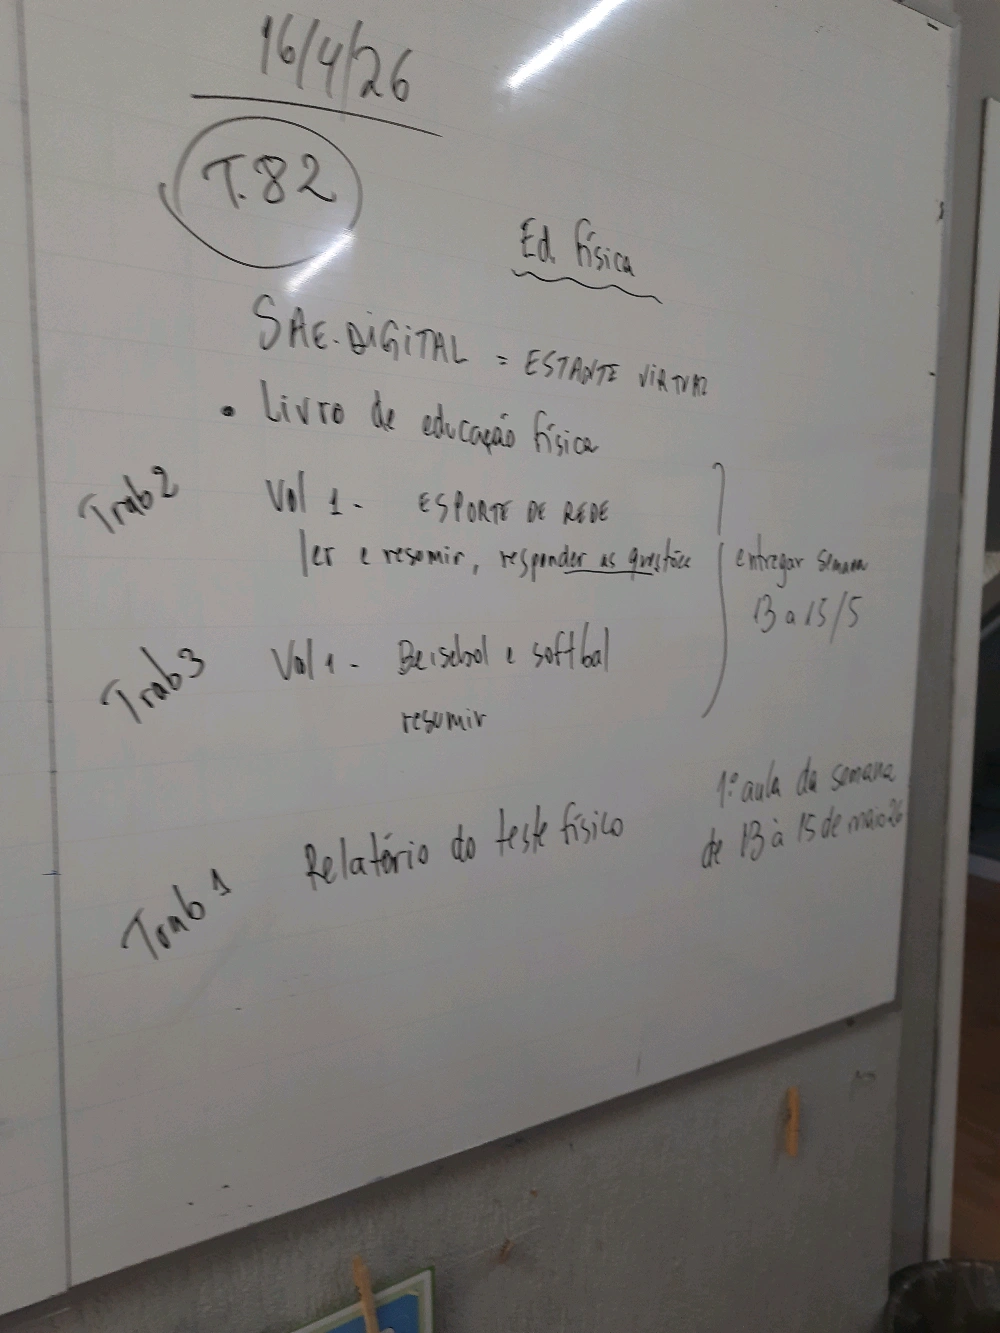 16/4/26
T.82
Ed. física
SAE.DiGiTAL = ESTANTE ViRTUAL
• Livro de educação física
Trab 2 Vol 1 - ESPORTE DE REDE
ler e resumir, responder as questões
entregar semana
13 a 15/5
Trab 3 Vol 1 - Beisebol e softbal
resumir
Trab 1 Relatório do teste físico
1ª aula da semana
de 13 à 15 de maio 26